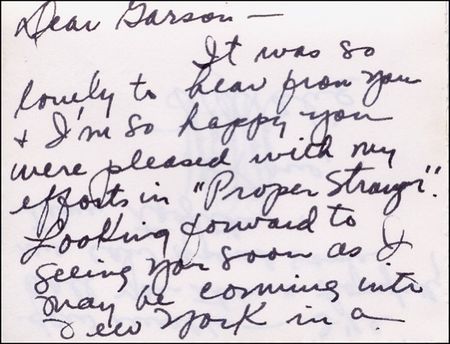 Dear Garson —
It was so
lovely to hear from you
& I'm so happy you
were pleased with my
efforts in "Proper Stranger".
Looking forward to
seeing you soon as I
may be coming into
New York in a